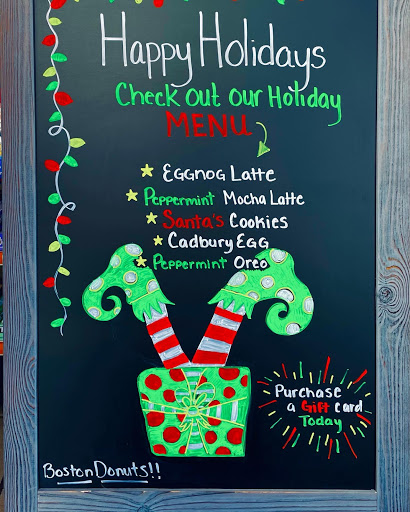 Happy Holidays
Check Out Our Holiday
MENU
Eggnog Latte
Peppermint Mocha Latte
Santa's Cookies
Cadbury Egg
Peppermint Oreo
Purchase
a Gift Card
Today
Boston Donuts!!